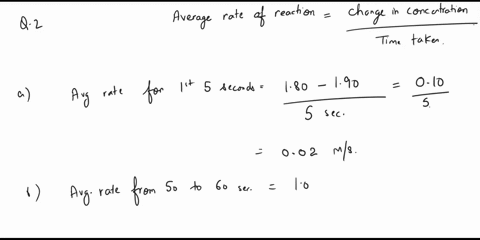 Q.2 Average rate of reaction = change in concentration / Time taken.
a) Avg rate for 1st 5 seconds = 1.80 - 1.90 / 5 sec. = 0.10 / 5
= 0.02 M/s.
b) Avg. rate from 50 to 60 sec. = 1.0